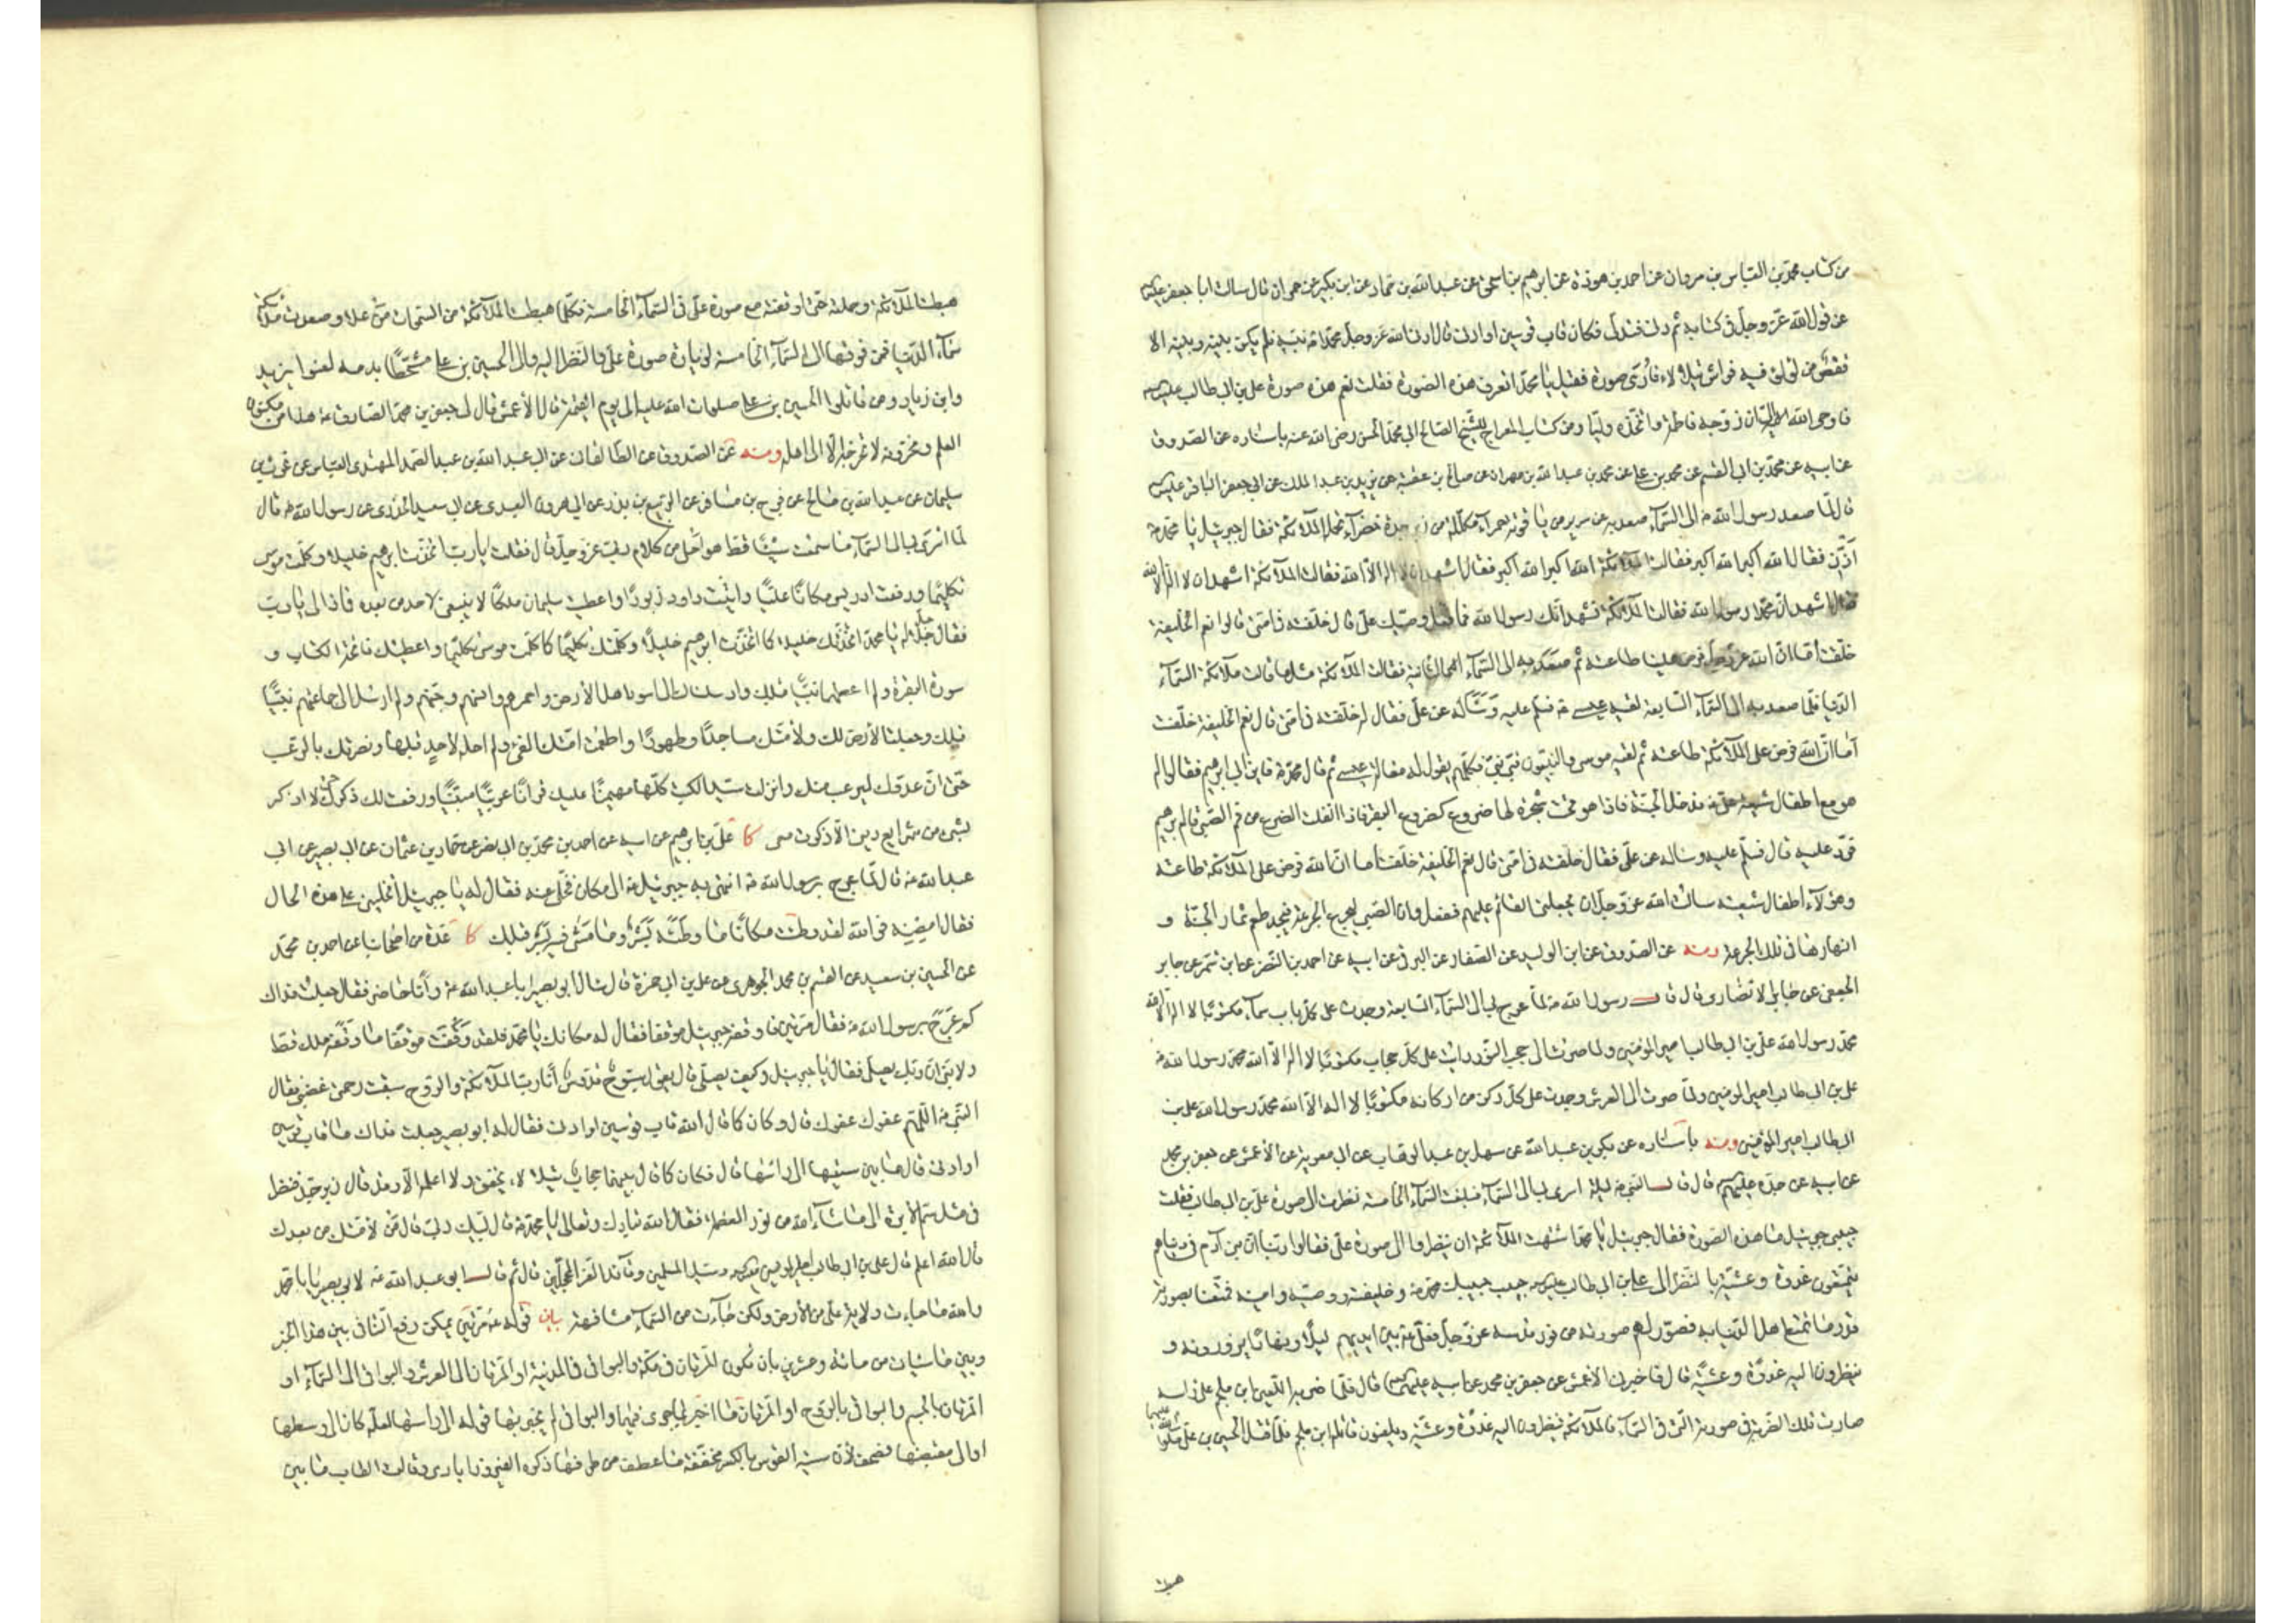 من كتاب محمد بن العباس بن مروان عن احمد بن هوذة عن ابرهيم بن اسحق عن عبد الله بن حماد عن ابن بكير عن حمران قال سالت ابا جعفر عليه السلم
عن قول الله عز وجل في كتابه ثم دنى فتدلى فكان قاب قوسين او ادنى قال ادنى الله عز وجل محمدا منه فلم يكن بينه وبينه الا
قفص من لؤلؤ فيه فراش يتلألأ فأرى صورة فقيل يا محمد اتعرف هذه الصورة فقلت نعم هذه صورة علي بن ابي طالب عليه السلم
فاوحى الله الى ان زوجه فاطمة واتخذه وليا ومن كتاب المعراج للشيخ الصالح ابي محمد الحسن رضي الله عنه باسناده عن الصدوق
عن ابيه عن محمد بن ابي القسم عن محمد بن علي عن محمد بن عبد الله بن مهران عن صالح بن عقبة عن يزيد بن عبد الملك عن ابي جعفر الباقر عليه السلم
قال لما صعد رسول الله ص الى السماء صعد به على سرير من ياقوتة حمراء مكللة من زبرجدة خضراء تحمله الملائكة فقال جبرئيل يا محمد
أذن فقال الله اكبر الله اكبر فقالت الملائكة الله اكبر الله اكبر فقال اشهد ان لا اله الا الله فقالت الملائكة اشهد ان لا اله الا الله
فقال اشهد ان محمدا رسول الله فقالت الملائكة نشهد انك رسول الله فما فعل وصيك علي قال خلفته في امتي قالوا نعم الخليفة
خلفت أما ان الله عز وجل فرض علينا طاعته ثم صعد به الى السماء الثانية فقالت الملائكة مثل ما قالت ملائكة السماء
الدنيا فلما صعد به الى السماء السابعة لقيه عيسى ع فسلم عليه وسأله عن علي فقال له خلفته في امتي قال نعم الخليفة خلفت
أما ان الله فرض على الملائكة طاعته ثم لقيه موسى والنبيون نبي نبي فكلهم يقول له مقالة عيسى ثم قال محمد ص فاين ابي ابرهيم فقالوا له
هو مع اطفال شيعة علي فدخل الجنة فاذا هو تحت شجرة لها ضروع كضروع البقر فاذا انفلت الضرع من فم الصبي قام ابرهيم
فرد عليه قال فسلم عليه وساله عن علي فقال خلفته في امتي قال نعم الخليفة خلفت أما ان الله فرض على الملائكة طاعته
وهؤلاء اطفال شيعته سالت الله عز وجل ان يجعلني القائم عليهم ففعل وان الصبي ليجرع الجرعة فيجد طعم ثمار الجنة و
انهارها في تلك الجرعة ومنه عن الصدوق عن ابن الوليد عن الصفار عن البرقي عن ابيه عن احمد بن النضر عن ابن شمر عن جابر
الجعفي عن جابر الانصاري قال قال رسول الله ص لما عرج بي الى السماء السابعة وجدت على كل باب سماء مكتوبا لا اله الا الله
محمد رسول الله علي بن ابي طالب امير المؤمنين ولما صرت الى حجب النور رايت على كل حجاب مكتوبا لا اله الا الله محمد رسول الله ص
علي بن ابي طالب امير المؤمنين ولما صرت الى العرش وجدت على كل ركن من اركانه مكتوبا لا اله الا الله محمد رسول الله علي بن
ابي طالب امير المؤمنين ومنه باسناده عن بكر بن عبد الله عن سهل بن عبد الوهاب عن ابي معوية عن الأعمش عن جعفر بن محمد
عن ابيه عن جده عليهم السلم قال قال النبي ص ليلة اسري بي الى السماء فبلغت السماء الخامسة نظرت الى صورة علي بن ابي طالب فقلت
حبيبي جبرئيل ما هذه الصورة فقال جبرئيل يا محمد اشتهت الملائكة ان ينظروا الى صورة علي فقالوا ربنا ان بني آدم في دنياهم
يتمتعون غدوة وعشية بالنظر الى علي بن ابي طالب عليه السلم حبيب حبيبك محمد ص وخليفته ووصيه وامينه فمتعنا بصورته
قدر ما تمتع اهل الدنيا به فصور لهم صورته من نور قدسه عز وجل فعلي ع بين ايديهم ليلا ونهارا يزورونه و
ينظرون اليه غدوة وعشية قال فاخبرني الأعمش عن جعفر بن محمد عن ابيه عليهما السلم قال فلما ضربه اللعين ابن ملجم على راسه
صارت تلك الضربة في صورته التي في السماء فالملائكة ينظرون اليه غدوة وعشية ويلعنون قاتله ابن ملجم فلما قتل الحسين بن علي صلوات الله عليهما
هبطت
هبطت الملائكة وحملته حتى اوقفته مع صورة علي في السماء الخامسة فكلما هبطت الملائكة من السموات من علا وصعدت ملائكة
سماء الدنيا فمن فوقها الى السماء الخامسة لزيارة صورة علي والنظر اليه والى الحسين بن علي متشحطا بدمه لعنوا يزيد
وابن زياد ومن قاتلوا الحسين بن علي صلوات الله عليه الى يوم القيمة قال الأعمش قال لي جعفر بن محمد الصادق ع هذا من مكنون
العلم ومخزونه لا تخرجه الا الى اهله ومنه عن الصدوق عن الطالقاني عن ابي عبد الله بن عبد الصمد المهتدي العباس عن غوث بن
سليمان عن عبد الله بن صالح عن فرج بن مسافر عن الربيع بن بدر عن ابي هرون العبدي عن ابي سعيد الخدري عن رسول الله ص قال
لما اسري بي الى السماء ما سمعت شيئا قط هو احلى من كلام ربي عز وجل قال فقلت يا رب اتخذت ابرهيم خليلا وكلمت موسى
تكليما ورفعت ادريس مكانا عليا وآتيت داود زبورا واعطيت سليمان ملكا لا ينبغي لاحد من بعده فماذا لي يا رب
فقال جل جلاله يا محمد اتخذتك خليلا كما اتخذت ابرهيم خليلا وكلمتك تكليما كما كلمت موسى تكليما واعطيتك فاتحة الكتاب و
سورة البقرة ولم اعطهما نبيا قبلك وارسلتك الى اسود اهل الأرض واحمرهم وانسهم وجنهم ولم ارسل الى جماعتهم نبيا
قبلك وجعلت الأرض لك ولأمتك مساجدا وطهورا واطعمت امتك الفيء ولم احله لاحد قبلها ونصرتك بالرعب
حتى ان عدوك ليرعب منك وانزلت سيد الكتب كلها مهيمنا عليك قرآنا عربيا مبينا ورفعت لك ذكرك حتى لا اذكر
بشيء من شرايع ديني الا ذكرت معي كا علي بن ابرهيم عن ابيه عن احمد بن محمد بن ابي نصر عن حماد بن عثمان عن ابي بصير عن ابي
عبد الله ع قال لما عرج برسول الله ص انتهى به جبرئيل ع الى مكان فخلى عنه فقال له يا جبرئيل أتخليني على هذه الحال
فقال امضه فوالله لقد وطئت مكانا ما وطئه بشر وما مشى فيه بشر قبلك كا عدة من اصحابنا عن احمد بن محمد
عن الحسين بن سعيد عن القسم بن محمد الجوهري عن علي بن ابي حمزة قال سال ابو بصير ابا عبد الله ع وأنا حاضر فقال جعلت فداك
كم عرج برسول الله ص فقال مرتين فاوقفه جبرئيل موقفا فقال له مكانك يا محمد فلقد وقفت موقفا ما وقفه ملك قط
ولا نبي ان ربك يصلي فقال يا جبرئيل وكيف يصلي قال يقول سبوح قدوس أنا رب الملائكة والروح سبقت رحمتي غضبي فقال
النبي ص اللهم عفوك عفوك قال وكان كما قال الله قاب قوسين او ادنى فقال له ابو بصير جعلت فداك ما قاب قوسين
او ادنى قال ما بين سيتها الى راسها قال فكان كما قال بينهما حجاب يتلألأ يخفق ولا اعلمه الا وقد قال زبرجد فنظر
في مثل سم الابرة الى ما شاء الله من نور العظمة فقال الله تبارك وتعالى يا محمد ص قال لبيك ربي قال من لأمتك من بعدك
قال الله اعلم قال علي بن ابي طالب امير المؤمنين وسيد المسلمين وقائد الغر المحجلين قال ثم قال ابو عبد الله ع لابي بصير يا با محمد
والله ما جاءت ولاية علي من الأرض ولكن جاءت من السماء مشافهة بيان قوله ع مرتين يمكن رفع التنافي بين هذا الخبر
وبين ما سيأتي من مائة وعشرين بان تكون المرتان في مكة والبواقي في المدينة او المرتان الى العرش والبواقي الى السماء او
المرتان بالجسم والبواقي بالروح او المرتان ما اخبر بما جرى فيهما والبواقي لم يخبر بها قوله الى راسها لعله كان الى وسطها
او الى مقبضها فصحف لأن سية القوس بالكسر مخففة ما عطف من طرفيها ذكره الفيروزابادي وقال القاب ما بين